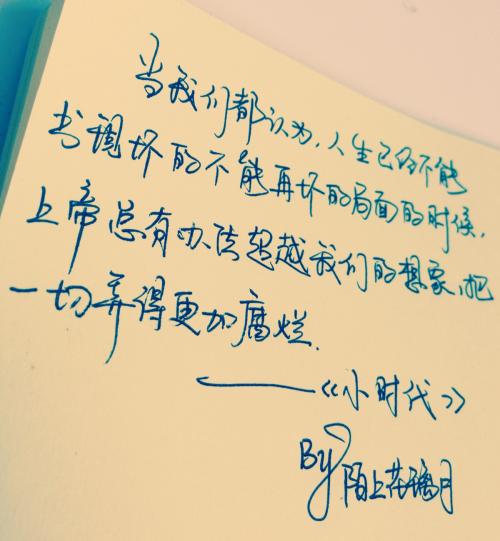 当我们都认为，人生已经不能
出现坏的不能再坏的局面的时候，
上帝总有办法超越我们的想象，把
一切弄得更加腐烂.
——《小时代》
By 陌上花璃月